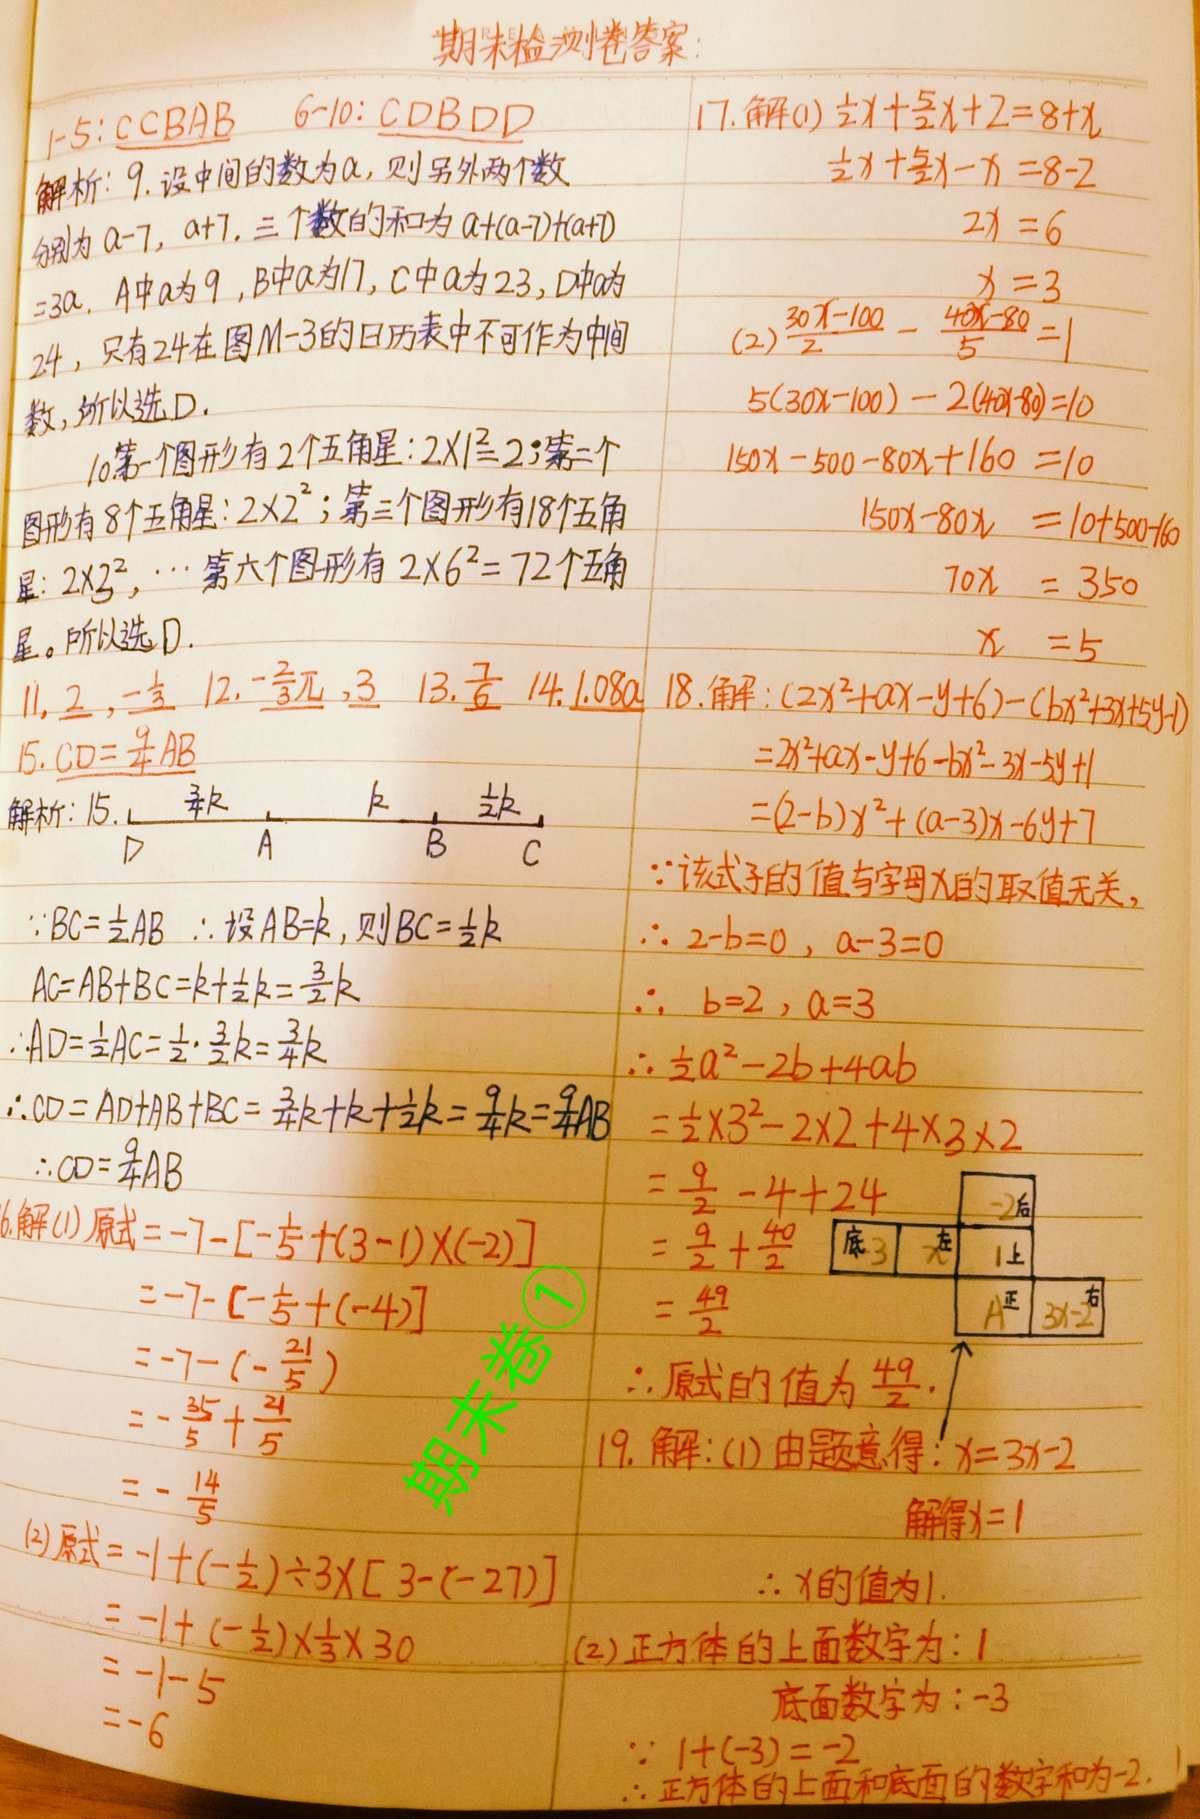 期末检测卷答案:
1-5: CCBAB 6-10: CDBDD
解析: 9. 设中间的数为a, 则另外两个数
分别为 a-7, a+7. 三个数的和为 a+(a-7)+(a+7)
=3a. A中a为9, B中a为17, C中a为23, D中a为
24, 只有24在图M-3的日历表中不可作为中间
数, 所以选D.
10.第一个图形有2个五角星: 2×1²=2; 第二个
图形有8个五角星: 2×2²; 第三个图形有18个五角
星: 2×3², … 第六个图形有 2×6²=72个五角
星。所以选D.
11. 2, -1/3 12. -2/3π, 3 13. 7/6 14. 1.08a
15. CD=9/4AB
解析: 15. 3/4k k 1/2k
D A B C
∵BC=1/2AB ∴设AB=k, 则BC=1/2k
AC=AB+BC=k+1/2k=3/2k
∴AD=1/2AC=1/2·3/2k=3/4k
∴CD=AD+AB+BC=3/4k+k+1/2k=9/4k=9/4AB
∴CD=9/4AB
16.解(1)原式=-7-[-1/5+(3-1)×(-2)]
=-7-[-1/5+(-4)]
=-7-(-21/5)
=-35/5+21/5
=-14/5
(2)原式=-1+(-1/2)÷3×[3-(-27)]
=-1+(-1/2)×1/3×30
=-1-5
=-6
期末卷①
17.解(1) 1/2x+5/2x+2=8+x
1/2x+5/2x-x=8-2
2x=6
x=3
(2) (30x-100)/2 - (40x-80)/5 =1
5(30x-100)-2(40x-80)=10
150x-500-80x+160=10
150x-80x =10+500-160
70x =350
x =5
18.解: (2x²+ax-y+6)-(bx²+3x+5y-1)
=2x²+ax-y+6-bx²-3x-5y+1
=(2-b)x²+(a-3)x-6y+7
∵该式子的值与字母x的取值无关,
∴ 2-b=0, a-3=0
∴ b=2, a=3
∴ 1/2a²-2b+4ab
=1/2×3²-2×2+4×3×2
=9/2-4+24
=9/2+40/2
=49/2
∴原式的值为49/2.
-2后
底3 x左 1上
A正 3x-2右
19. 解: (1) 由题意得: x=3x-2
解得x=1
∴x的值为1.
(2) 正方体的上面数字为: 1
底面数字为: -3
∵ 1+(-3)=-2
∴正方体的上面和底面的数字和为-2.